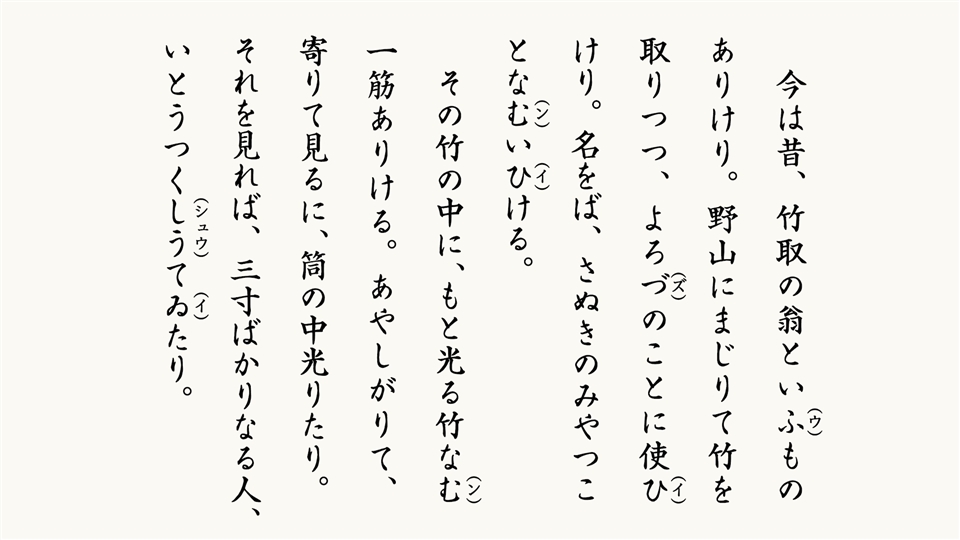 今は昔、竹取の翁といふ(ウ)もの
ありけり。野山にまじりて竹を
取りつつ、よろづ(ズ)のことに使ひ(イ)
けり。名をば、さぬきのみやつこ
となむ(ン)いひ(イ)ける。
その竹の中に、もと光る竹なむ(ン)
一筋ありける。あやしがりて、
寄りて見るに、筒の中光りたり。
それを見れば、三寸ばかりなる人、
いとうつくしう(シュウ)てゐ(イ)たり。